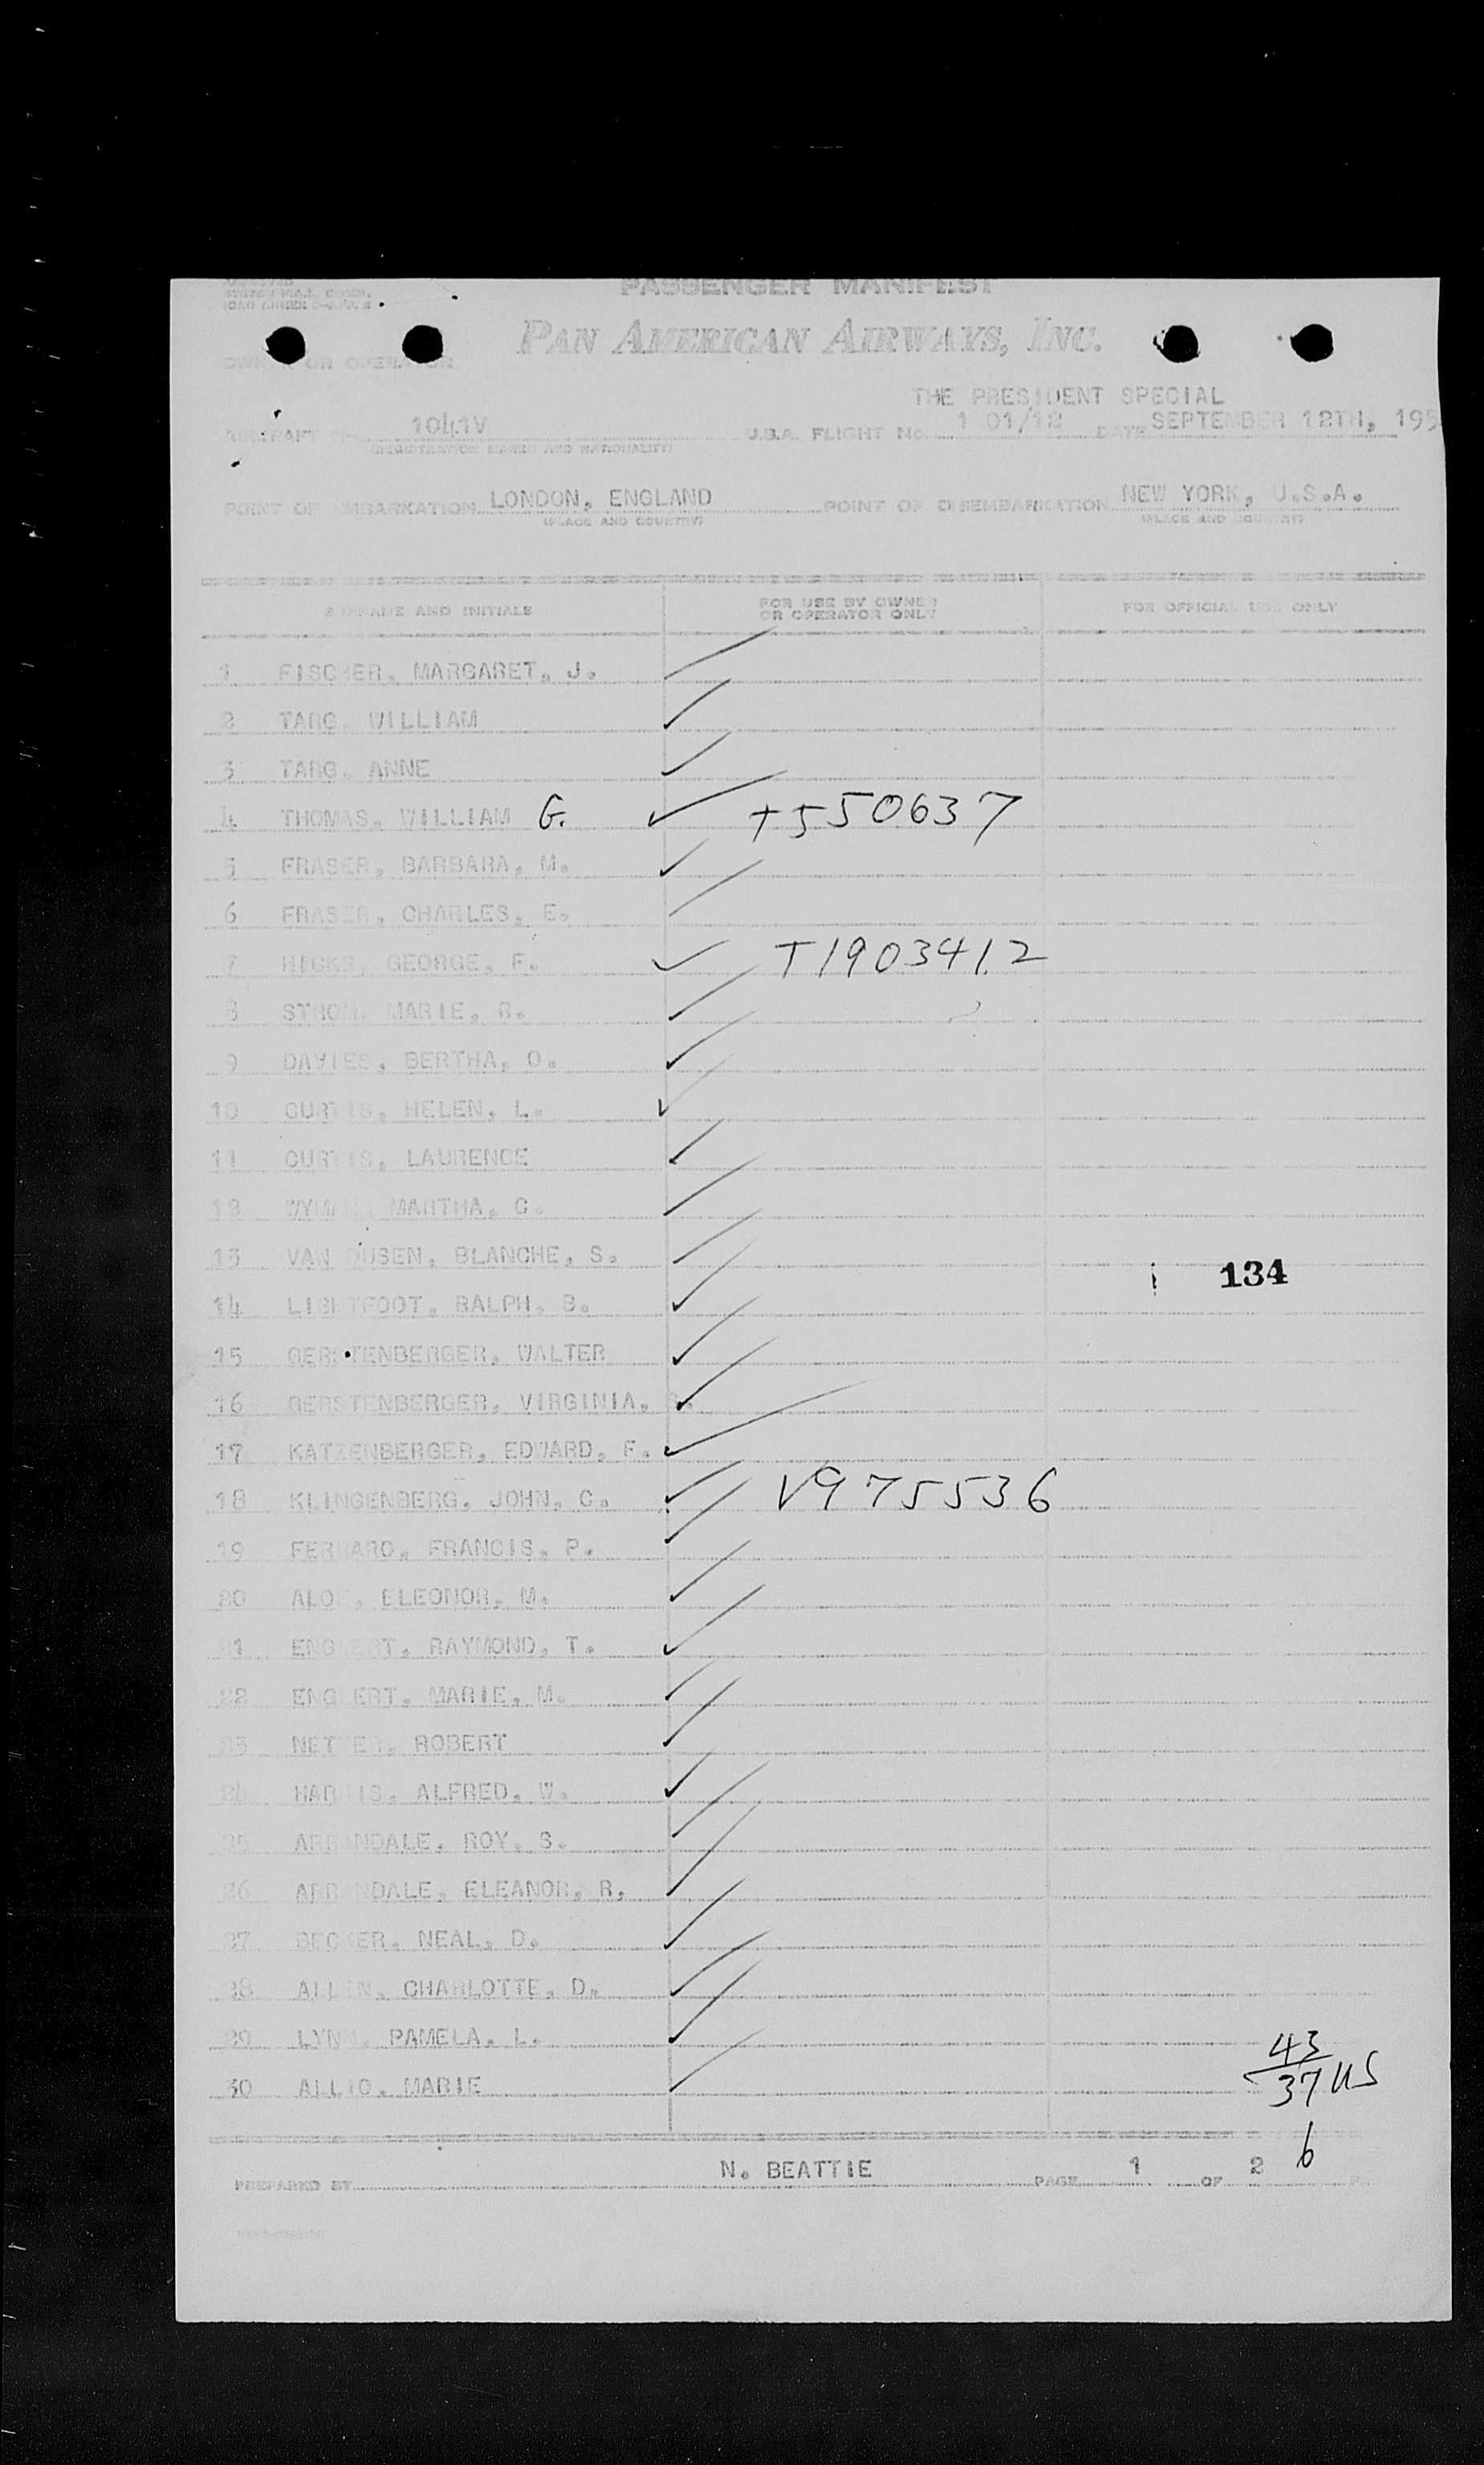 PASSENGER MANIFEST
PAN AMERICAN AIRWAYS, INC.
OWNER OR OPERATOR
THE PRESIDENT SPECIAL
AIRCRAFT No. 1041V U.S.A. FLIGHT No. 1 01/12 DATE SEPTEMBER 12TH, 195
(REGISTRATION MARKS AND NATIONALITY)
POINT OF EMBARKATION LONDON, ENGLAND POINT OF DISEMBARKATION NEW YORK, U.S.A.
(PLACE AND COUNTRY) (PLACE AND COUNTRY)
SURNAME AND INITIALS FOR USE BY OWNER OR OPERATOR ONLY FOR OFFICIAL USE ONLY
1 FISCHER, MARGARET, J.
2 TARG, WILLIAM
3 TARG, ANNE
4 THOMAS, WILLIAM G. T550637
5 FRASER, BARBARA, M.
6 FRASER, CHARLES, E.
7 HICKS, GEORGE, F. T1903412
8 STROM, MARIE, R.
9 DAVIES, BERTHA, O.
10 CURTIS, HELEN, L.
11 CURTIS, LAURENCE
12 WYMAN, MARTHA, C.
13 VAN DUSEN, BLANCHE, S.
134
14 LIGHTFOOT, RALPH, B.
15 GERSTENBERGER, WALTER
16 GERSTENBERGER, VIRGINIA,
17 KATZENBERGER, EDWARD, F.
18 KLINGENBERG, JOHN, C. V975536
19 FERRARO, FRANCIS, P.
20 ALOE, ELEONOR, M.
21 ENGLERT, RAYMOND, T.
22 ENGLERT, MARIE, M.
23 NETTER, ROBERT
24 HARRIS, ALFRED, W.
25 ARRANDALE, ROY, S.
26 ARRANDALE, ELEANOR, R.
27 BECKER, NEAL, D.
28 ALLEN, CHARLOTTE, D.
29 LYNN, PAMELA, L.
43
30 ALLIO, MARIE 37 US
6
PREPARED BY N. BEATTIE PAGE 1 OF 2